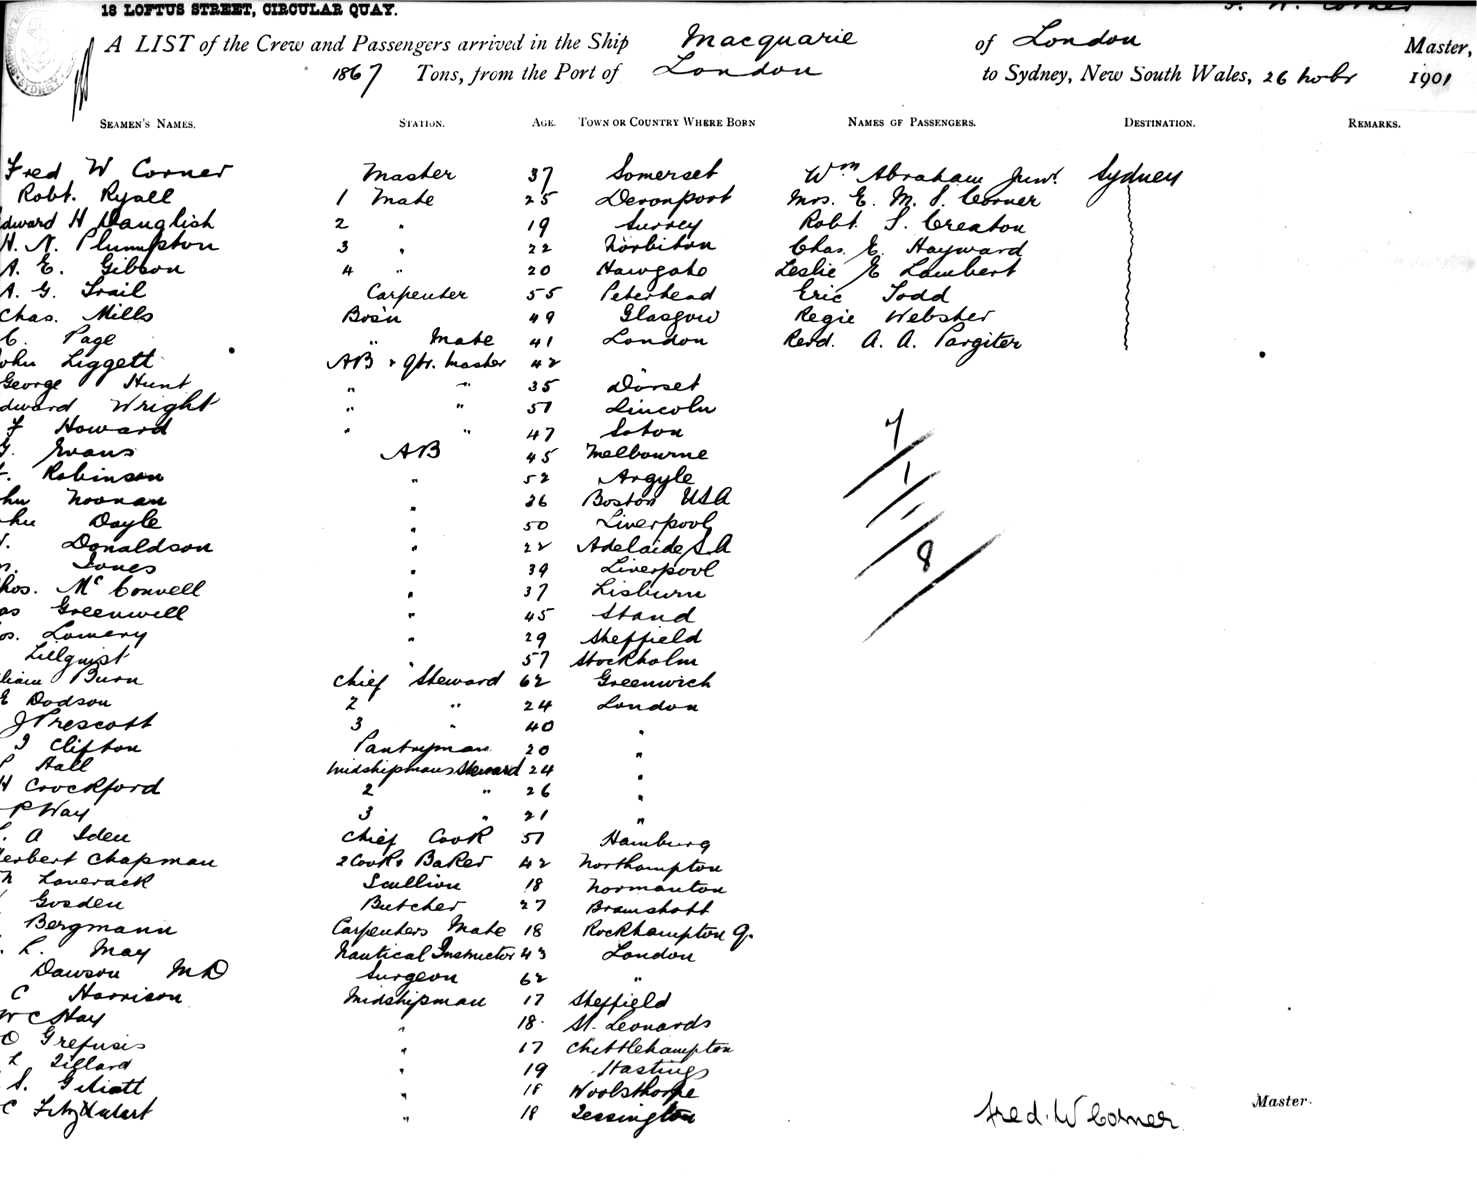 18 LOFTUS STREET, CIRCULAR QUAY. F. W. Corner
A LIST of the Crew and Passengers arrived in the Ship Macquarie of London Master,
1867 Tons, from the Port of London to Sydney, New South Wales, 26 Novbr 1901
SEAMEN'S NAMES. STATION. AGE. TOWN OR COUNTRY WHERE BORN NAMES OF PASSENGERS. DESTINATION. REMARKS.
Fred W Corner Master 37 Somerset Wm Abraham Junr. Sydney
Robt. Ryall 1 Mate 25 Devonport Mrs. E. M. S. Corner
dward H Danglish 2 " 19 Surrey Robt. S. Creaton
H. N. Plumpton 3 " 22 Norbiton Chas. E. Hayward
A. E. Gibson 4 " 20 Leslie E Lambert
A. G. Trail Carpenter 55 Peterhead Eric Todd
Chas. Mills Bos'n 49 Glasgow Regie Webster
C. Page " Mate 41 London Revd. A. A. Pargiter
ohn Liggett AB & Qtr. Master 42 "
George Hunt " " 35 Dorset
dward Wright " " 51 Lincoln
F Howard " " 47 Soton
G. Evans AB 45 Melbourne
Robinson " 52 Argyle
hn Noonan " 26 Boston USA
hn Doyle " 50 Liverpool
Donaldson " 22 Adelaide S.A
Jones " 39 Liverpool
hos. McConvell " 37 Lisburn
as Greenwell " 45 Stand
os. Lowery " 29 Sheffield
Lillqvist " 57 Stockholm
lliam Burn Chief Steward 62 Greenwich
E Dodson 2 " 24 London
J Prescott 3 " 40 "
J Clifton Pantryman 20 "
Hall Midshipmans Steward 24 "
H Crockford 2 " 26 "
P Way 3 " 21 "
A Iden Chief Cook 51 Hamburg
erbert Chapman 2 Cook & Baker 42 Northampton
Laverack Scullion 18 Normanton
Gosden Butcher 27 Bramshott
Bergmann Carpenters Mate 18 Rockhampton Q.
L. May Nautical Instructor 43 London
Dawson MD Surgeon 62 "
C Harrison Midshipman 17 Sheffield
W C Hay " 18 St. Leonards
O Grefusis " 17 Chittlehampton
L Tillard " 19 Hastings
S. " 18 Woolsthorpe
C " 18 Tessington
7
1
-
8
Fred. W Corner Master.